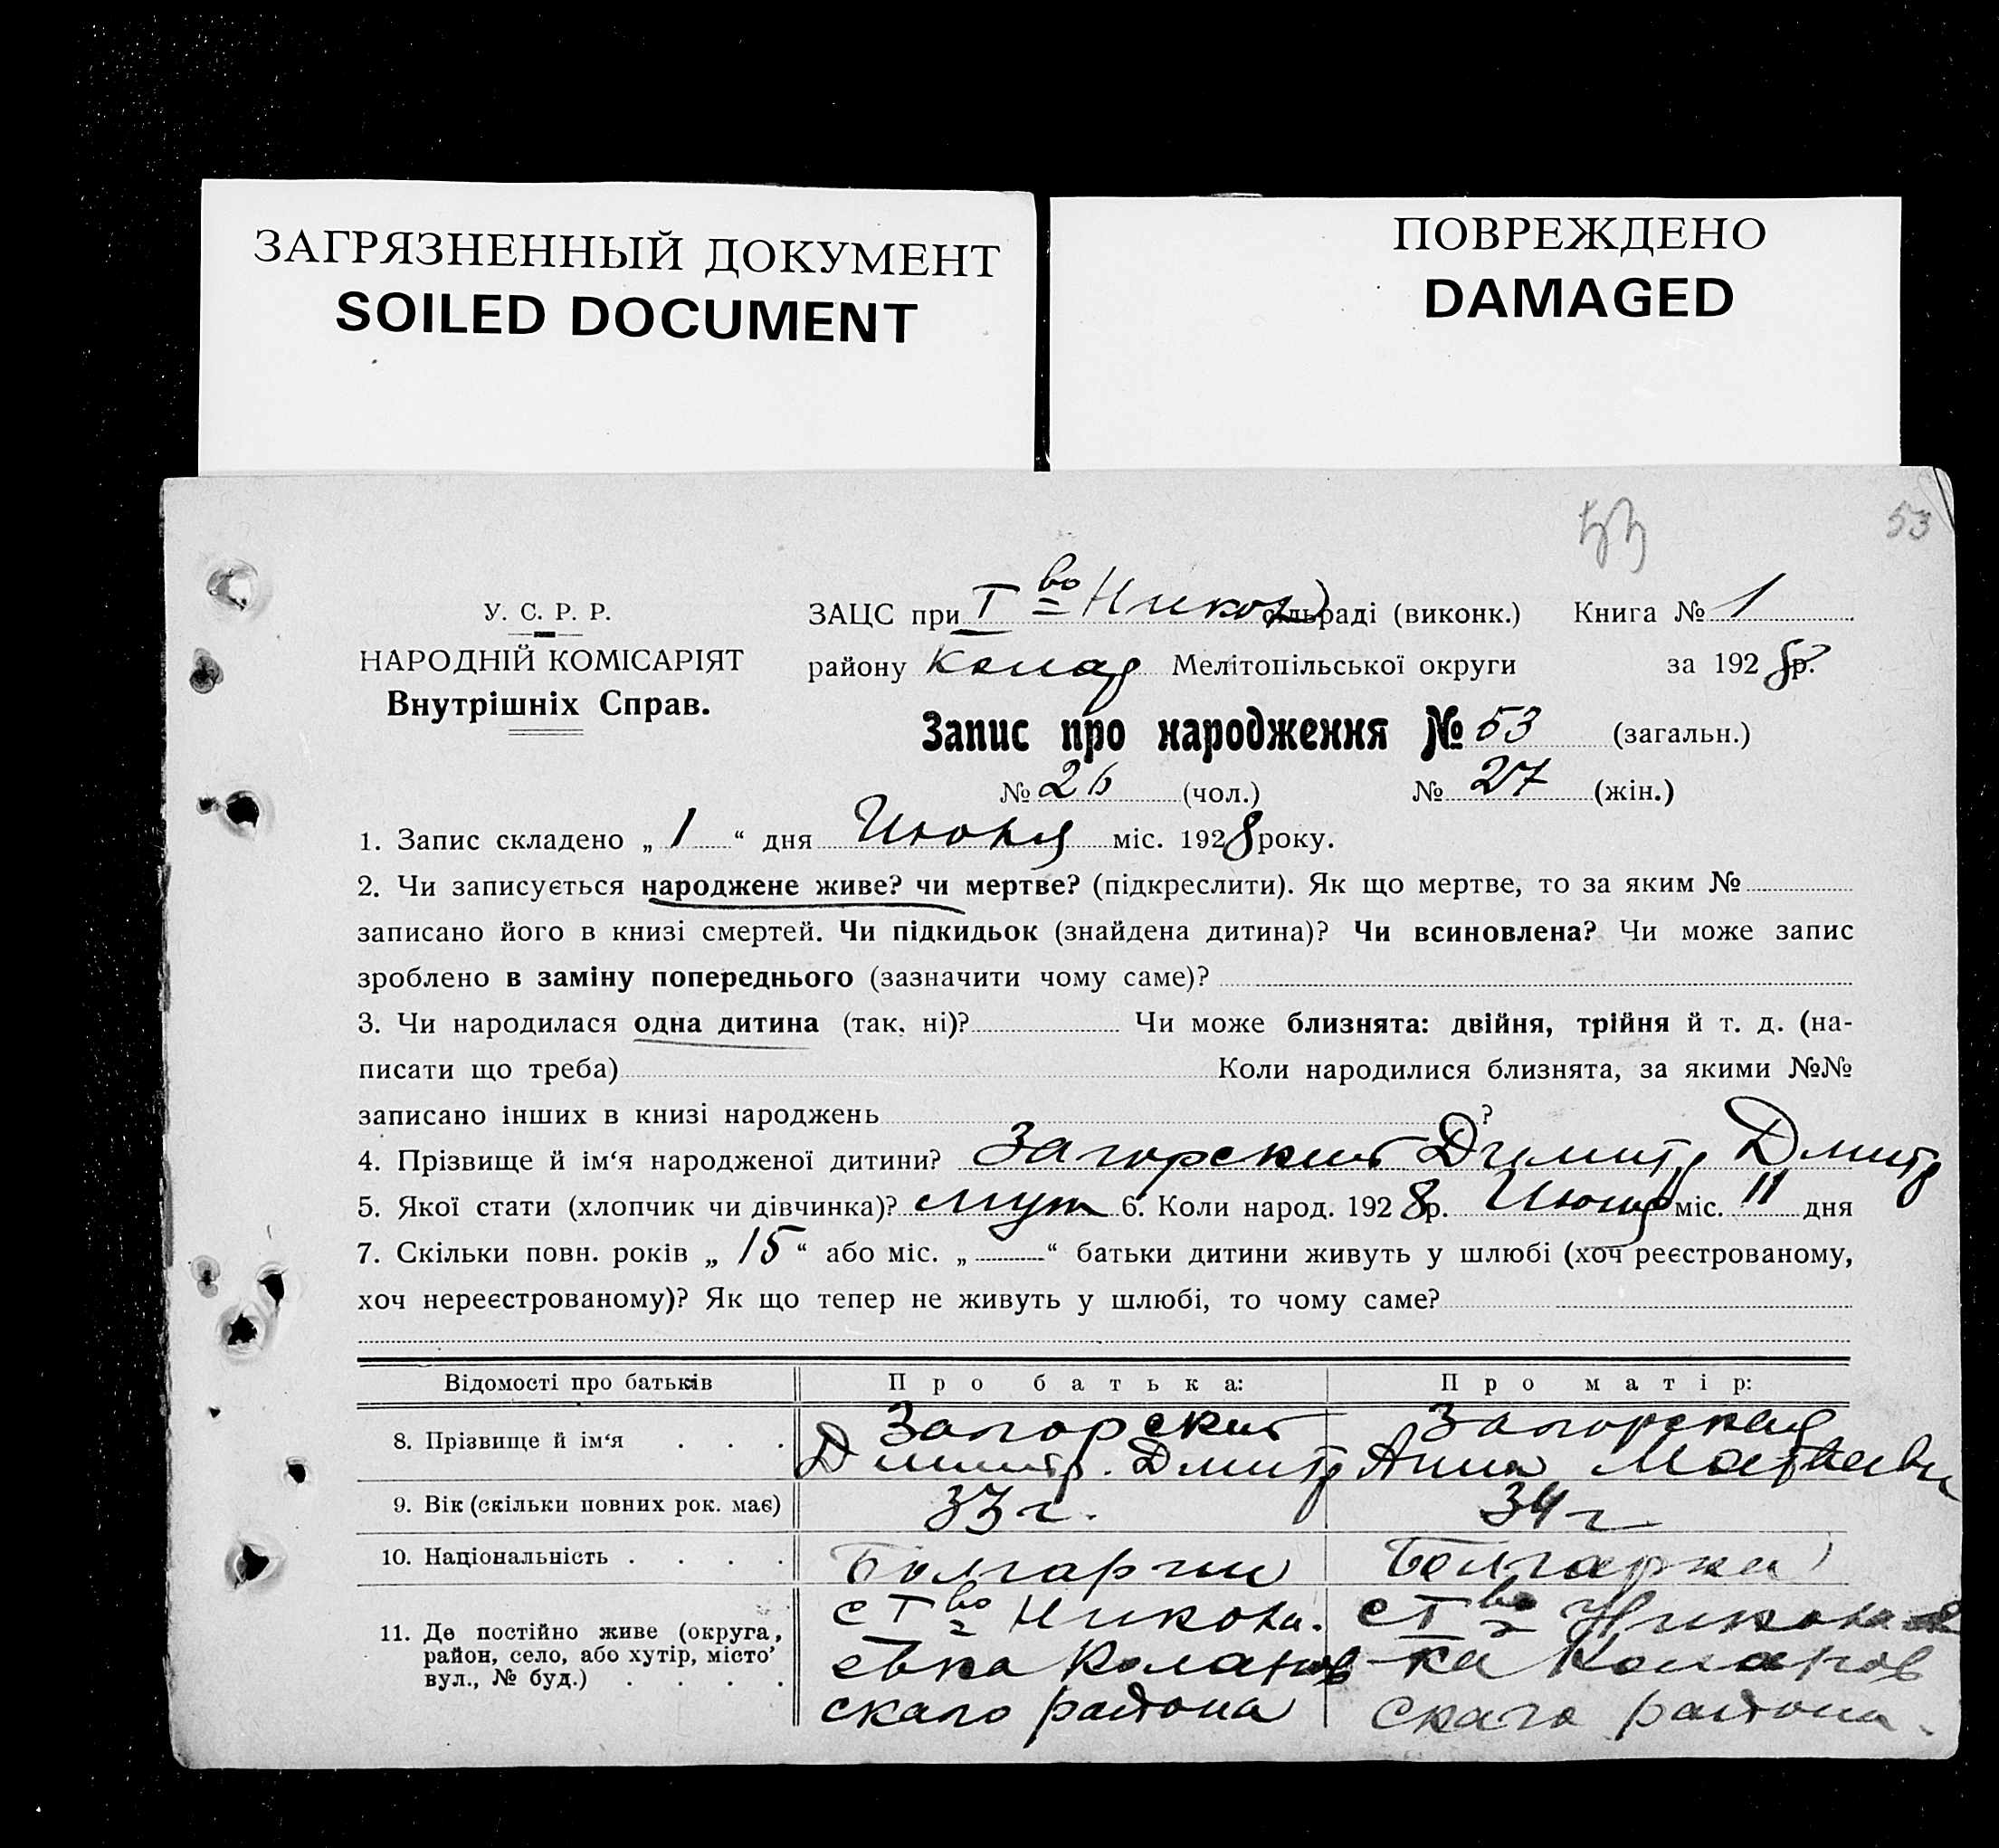 ЗАГРЯЗНЕННЫЙ ДОКУМЕНТ
SOILED DOCUMENT
ПОВРЕЖДЕНО
DAMAGED
53
53
У. С. Р. Р.
НАРОДНІЙ КОМІСАРІЯТ
Внутрішніх Справ.
ЗАЦС при І во Никол сільраді (виконк.) Книга № 1
району Мелітопільської округи за 1928 р.
Запис про народження № 53 (загальн.)
№ 26 (чол.) № 27 (жін.)
1. Запис складено „ 1 “ дня Июня міс. 1928 року.
2. Чи записується народжене живе? чи мертве? (підкреслити). Як що мертве, то за яким №
записано його в книзі смертей. Чи підкидьок (знайдена дитина)? Чи всиновлена? Чи може запис
зроблено в заміну попереднього (зазначити чому саме)?
3. Чи народилася одна дитина (так, ні)? Чи може близнята: двійня, трійня й т. д. (на-
писати що треба) Коли народилися близнята, за якими №№
записано інших в книзі народжень ?
4. Прізвище й ім‘я народженої дитини? Загорский Димитр Дмитр
5. Якої стати (хлопчик чи дівчинка)? муж 6. Коли народ. 1928 р. міс. 11 дня
7. Скільки повн. років „ 15 “ або міс. „ “ батьки дитини живуть у шлюбі (хоч реєстрованому,
хоч нереєстрованому)? Як що тепер не живуть у шлюбі, то чому саме?
Відомості про батьків Про батька: Про матір:
8. Прізвище й ім‘я Загорский Загорская
Димитр. Дмитр Анна Матвеевн
9. Вік (скільки повних рок. має) 33 г. 34 г
10. Національність Болгарин Болгарка
11. Де постійно живе (округа, район, село, або хутір, місто’ вул., № буд.)
с І во Никола. с І во Никола
евка Коларов -ка Коларов
скаго района скаго района.